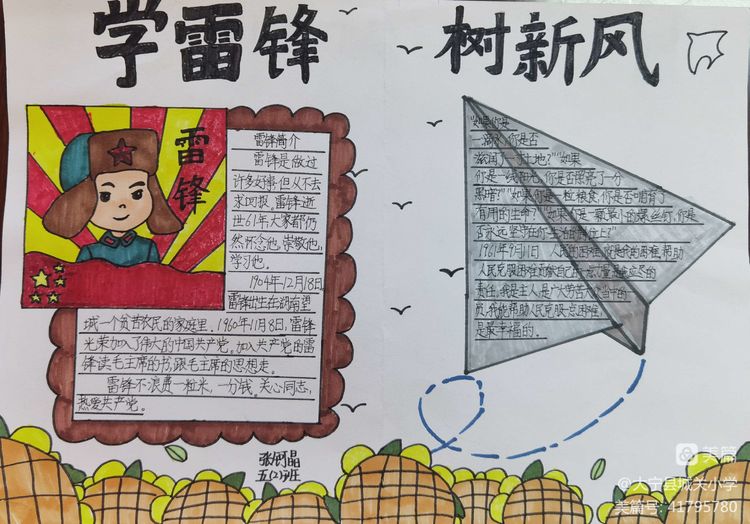 学雷锋 树新风
雷锋
雷锋简介
雷锋是做过
许多好事,但从不去
求回报。雷锋逝
世61年,大家都仍
然怀念他,崇敬他,
学习他。
1904年12月18日,
雷锋出生在湖南望
城一个贫苦农民的家庭里。1960年11月8日,雷锋
光荣加入了伟大的中国共产党。加入共产党的雷
锋读毛主席的书,跟毛主席的思想走。
雷锋不浪费一粒米,一分钱。关心同志,
热爱共产党。
"如果你是
一滴水,你是否
滋润了一寸土地?""如果
你是一线阳光,你是否照亮了一分
黑暗?""如果你是一粒粮食,你是否哺育了
有用的生命?""如果你是一颗最小的螺丝钉,你是
否永远坚守在你生活的岗位上?"
1961年9月11日 人民的困难,就是我的困难,帮助
人民克服困难贡献自己的
责任,我是主人,是广大劳苦大众当中的一
员,我能帮助人民克服一点困难,
是最幸福的。
张钶晶
五(2)班
美篇
@大宁县城关小学
美篇号: 41795780